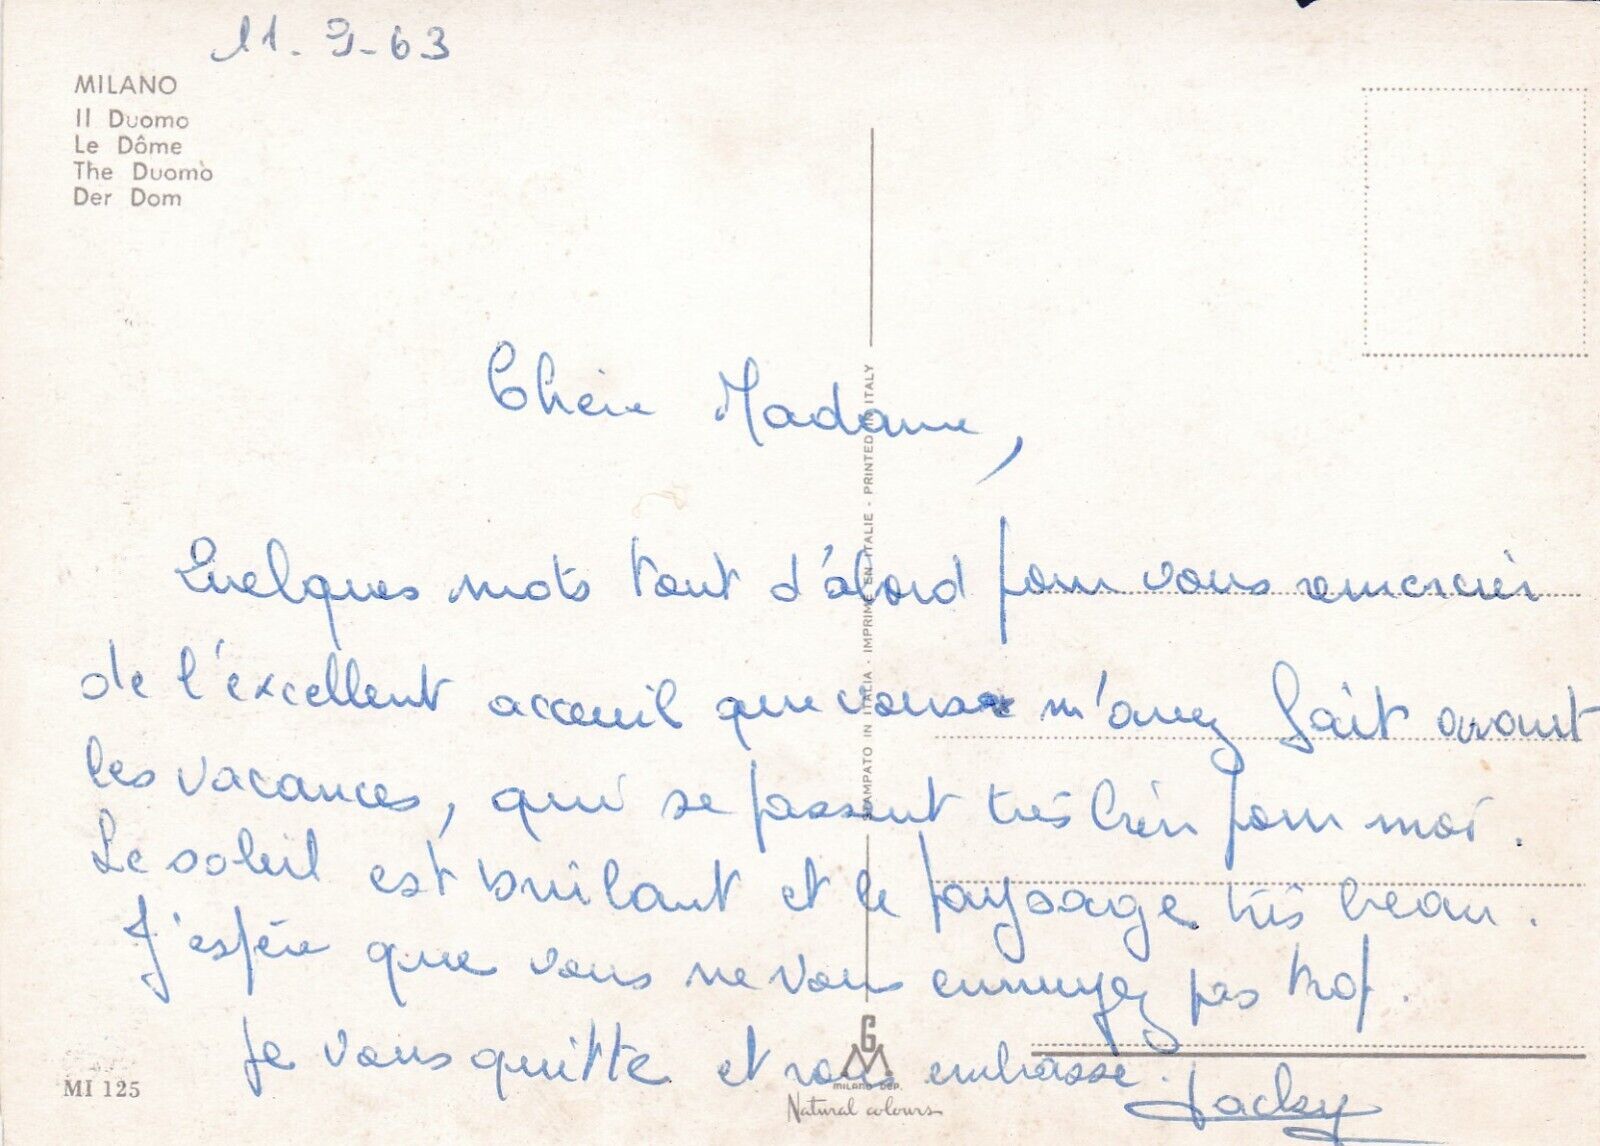 11-9-63
MILANO
Il Duomo
Le Dôme
The Duomò
Der Dom
STAMPATO IN ITALIA - IMPRIMÉ EN ITALIE - PRINTED IN ITALY
Chère Madame,
Quelques mots tout d'abord pour vous remercier
de l'excellent acceuil que vous m'avez fait avant
les vacances, qui se passent très bien pour moi.
Le soleil est brûlant et le paysage très beau.
J'espère que vous ne vous ennuyez pas trop.
Je vous quitte et vous embrasse.
Jacky
MI 125
G M
MILANO DEP.
Natural colours